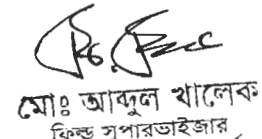 মোঃ আব্দুল খালেক
ফিল্ড সুপারভাইজার